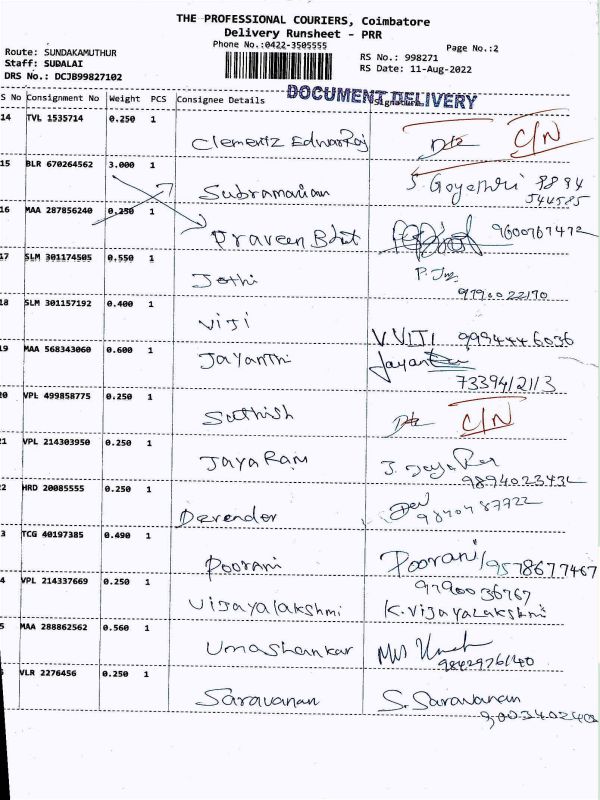 THE PROFESSIONAL COURIERS, Coimbatore
Delivery Runsheet - PRR
Phone No.:0422-3505555
Page No.:2
Route: SUNDAKAMUTHUR
Staff: SUDALAI
DRS No.: DCJB99827102
RS No.: 998271
RS Date: 11-Aug-2022
DOCUMENT DELIVERY
S No Consignment No Weight PCS Consignee Details Signature
14 TVL 1535714 0.250 1 C/N
15 BLR 670264562 3.000 1 Subramanian
16 MAA 287856240 0.250 1 Praveen Bhat 9600767472
17 SLM 301174505 0.550 1 Jothi 9790022170
18 SLM 301157192 0.400 1 Viji V.VIJI 9994446036
19 MAA 568343060 0.600 1 Jayanthi 7339412113
20 VPL 499858775 0.250 1 Sathish C/N
21 VPL 214303950 0.250 1 JayaRam
2 HRD 20085555 0.250 1 Devender
3 TCG 40197385 0.490 1 Poorani Poorani/9578677467
4 VPL 214337669 0.250 1 Vijayalakshmi 9790036767 K.Vijayalakshmi
5 MAA 288862562 0.560 1 Umashankar 9842976140
VLR 2276456 0.250 1 Saravanan S. Saravanan 900340240